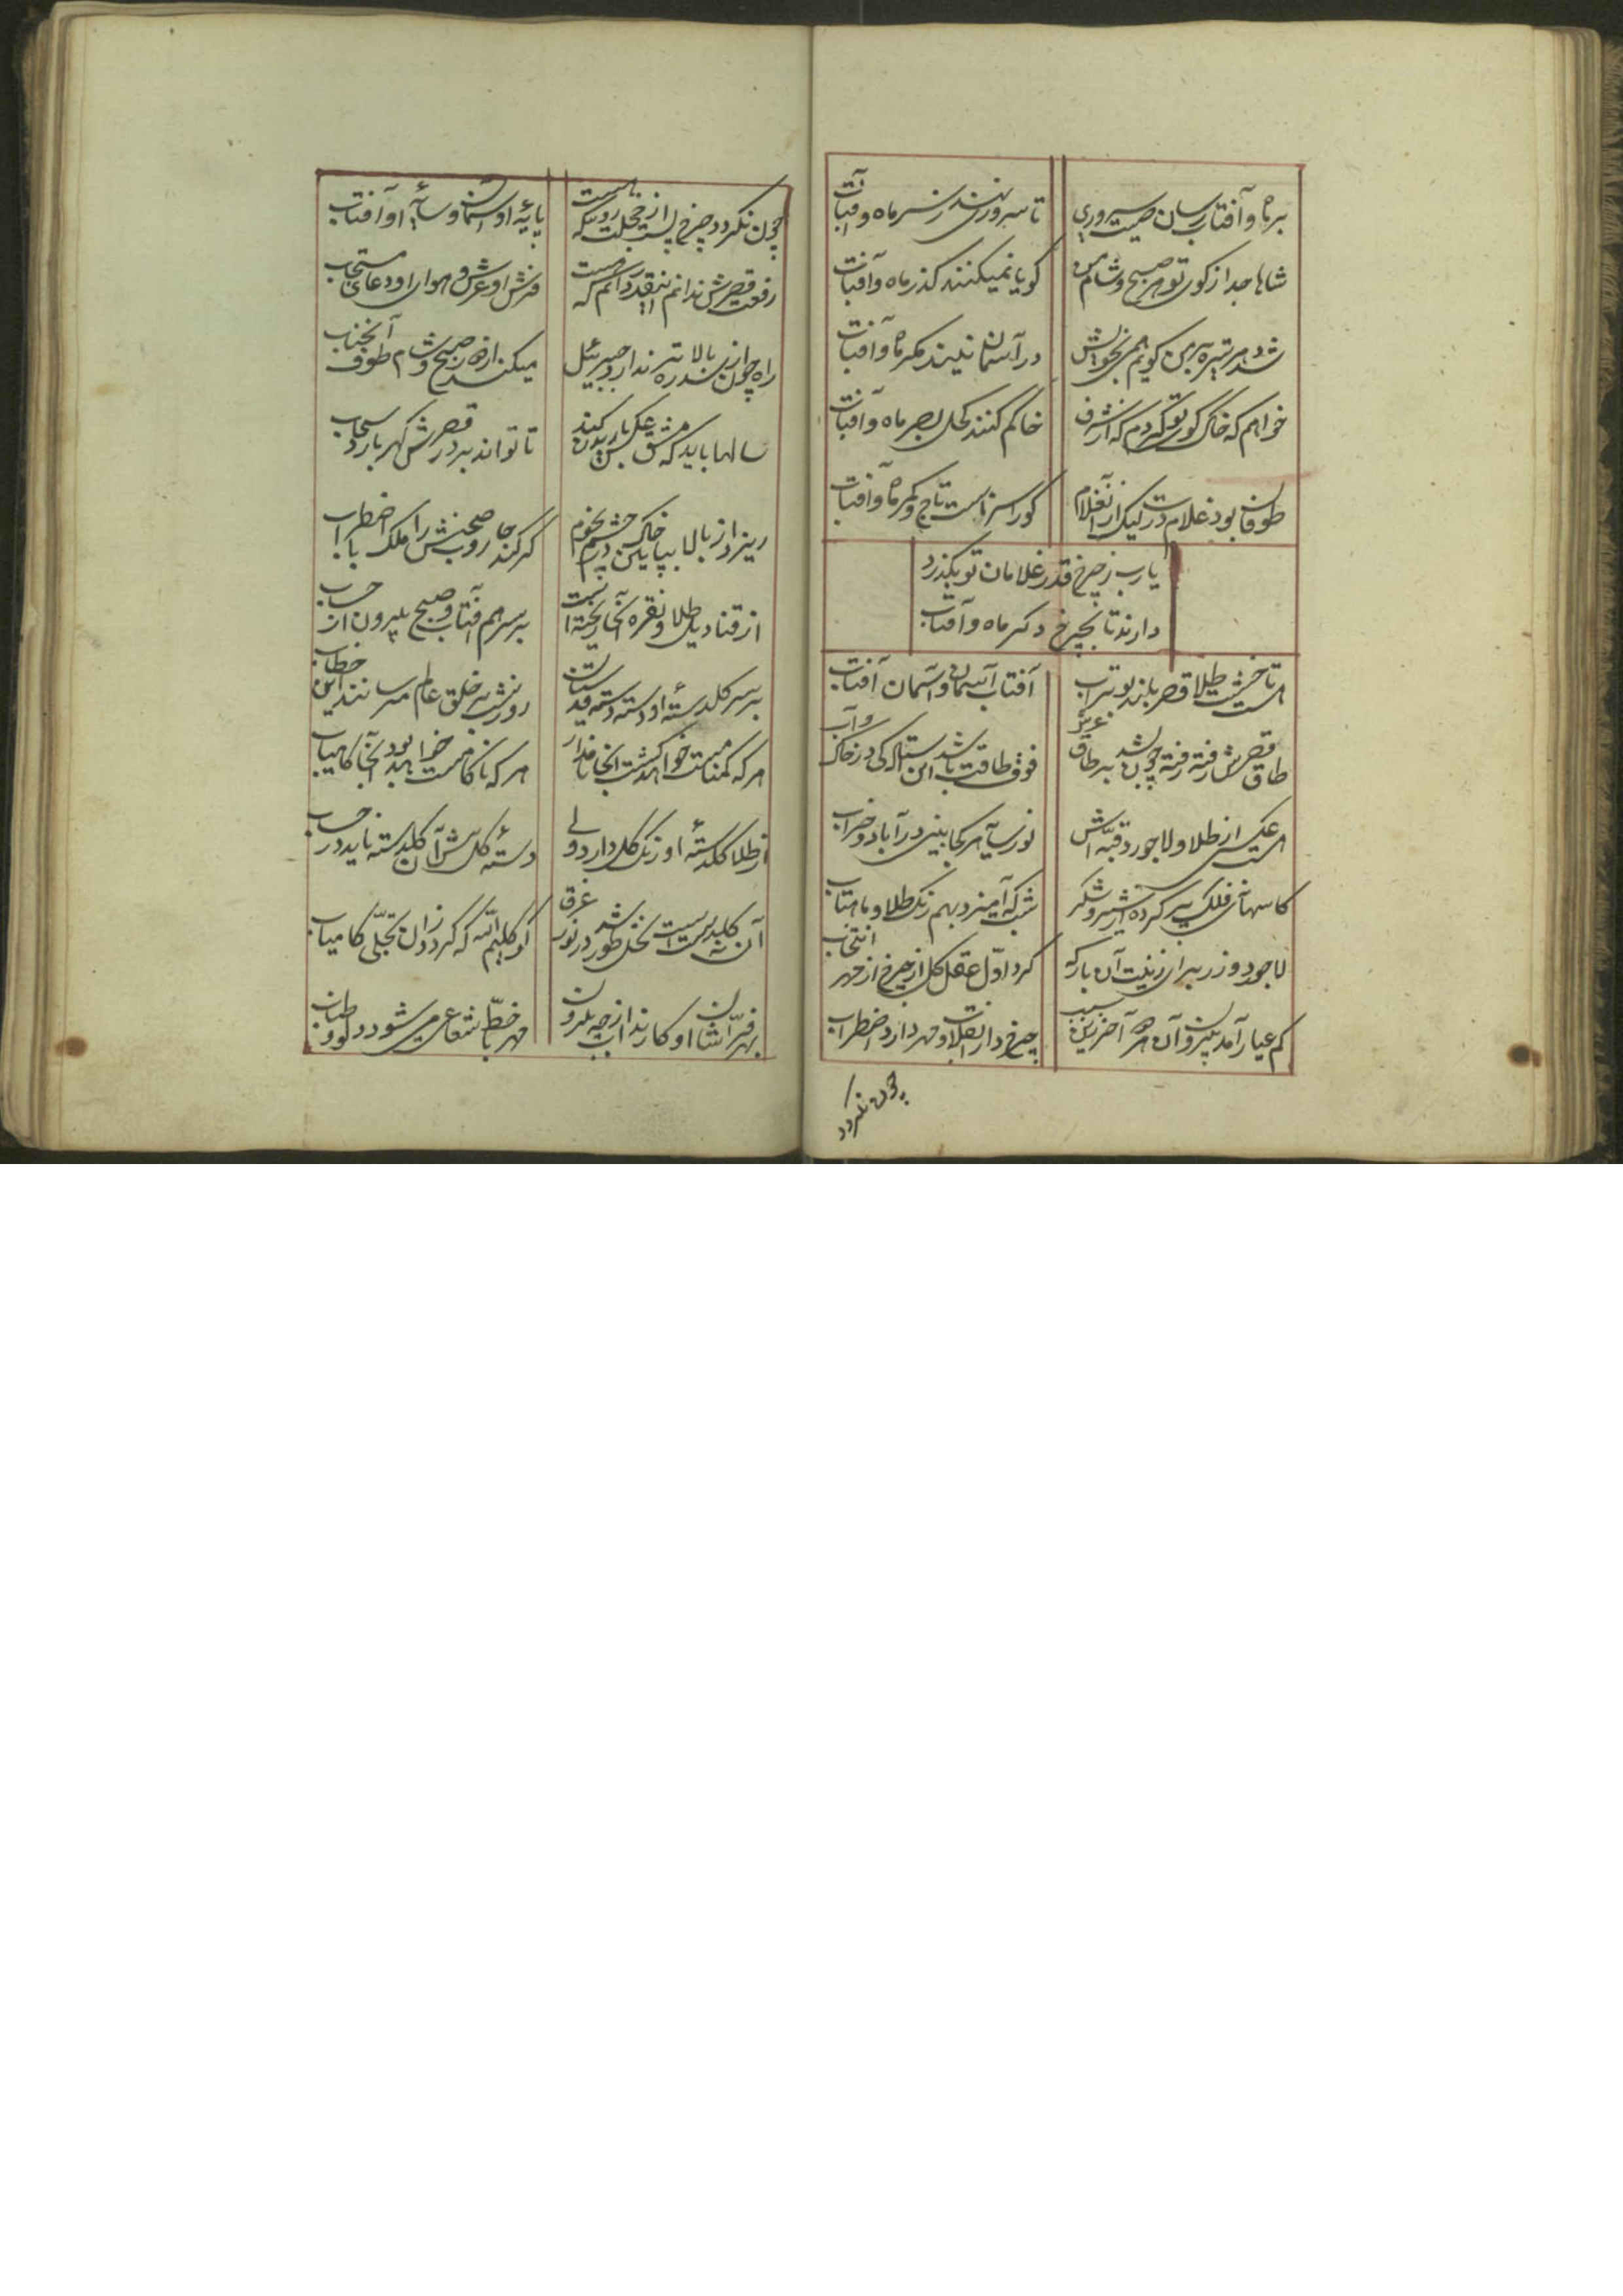 بر ماه و آفتاب رسان صیت سروری
تا سرورند بر سر ماه و آفتاب
شاها جدا ز کوی تو هر صبح و شام من
کویا نمیکنند کذر ماه و آفتاب
در آسمان نیند مکر ماه و آفتاب
خواهم که خاک کوی تو کردم که از شرف
خاکم کنند کحل بصر ماه و آفتاب
طوفان بود غلام درت لیک از آنغلام
کورا سزاست تاج و کمر ماه و آفتاب
یا رب ز چرخ قدر غلامان تو بکذرد
دارند تا بچرخ دکر ماه و آفتاب
تا خشت طلا قصر بلند بوتراب
آفتاب آسمان و آسمان آفتاب
طاق قصرش رفته رفته چون شد بر طاق عرش
فوق طاقت باشد این استاد کی در خاک و آب
عکس از طلا و لاجورد قبه اش
نور سایه هر کجا بینی در آباد و خراب
کاسهای فلک پر کرده از شیر و شکر
شب که آمیزد بهم رنک طلا و ماهتاب
لاجورد و زر برای زینت آن بارکه
کرد اول عقل کل از چرخ از مهر انتخاب
کم عیار آمد برون آن هر دو آخر زین سبب
چرخ دارد انقلاب و مهر دارد اضطراب
چون نکردد
چون نکردد چرخ پست از خجلت روییکه هست
پایهٔ او آسمان و سایهٔ او آفتاب
رفعت قصرش ندانم اینقدر دانم که هست
فرش او عرش و هوای او دعای مستجاب
راه چون از سدره بالاتر ندارد جبرئیل
میکند از دور صبح و شام طوف آنجناب
سالها باید که مشق عکس باریدن کند
تا تواند بر در قصرش کهر بارد سحاب
ریزد از بالا بپایین خاک در چشم نجوم
کر کند جاروب صحنش را ملک با اضطراب
از قنادیل طلا و نقره آنجا ریخته است
بر سر هم آفتاب و صبح بیرون از حساب
بر سر کلدستهٔ او دسته دسته قدسیان
روز و شب بر خلق عالم میرسانند این خطاب
هر که کمنامست خواهد کشت اینجا نامدار
هر که ناکامست خواهد بود آنجا کامیاب
از طلا کلدستهٔ او رنک کل دارد ولی
دستهٔ کل پیش آن کلدسته ناید در حساب
آن نه کلدسته است نخل طور شد در نور غرق
او کلیم الله که کردد زان تجلی کامیاب
بهر فراشان او کار ندارد چه برون
مهر با خط شعاعی میشود دلو و طناب